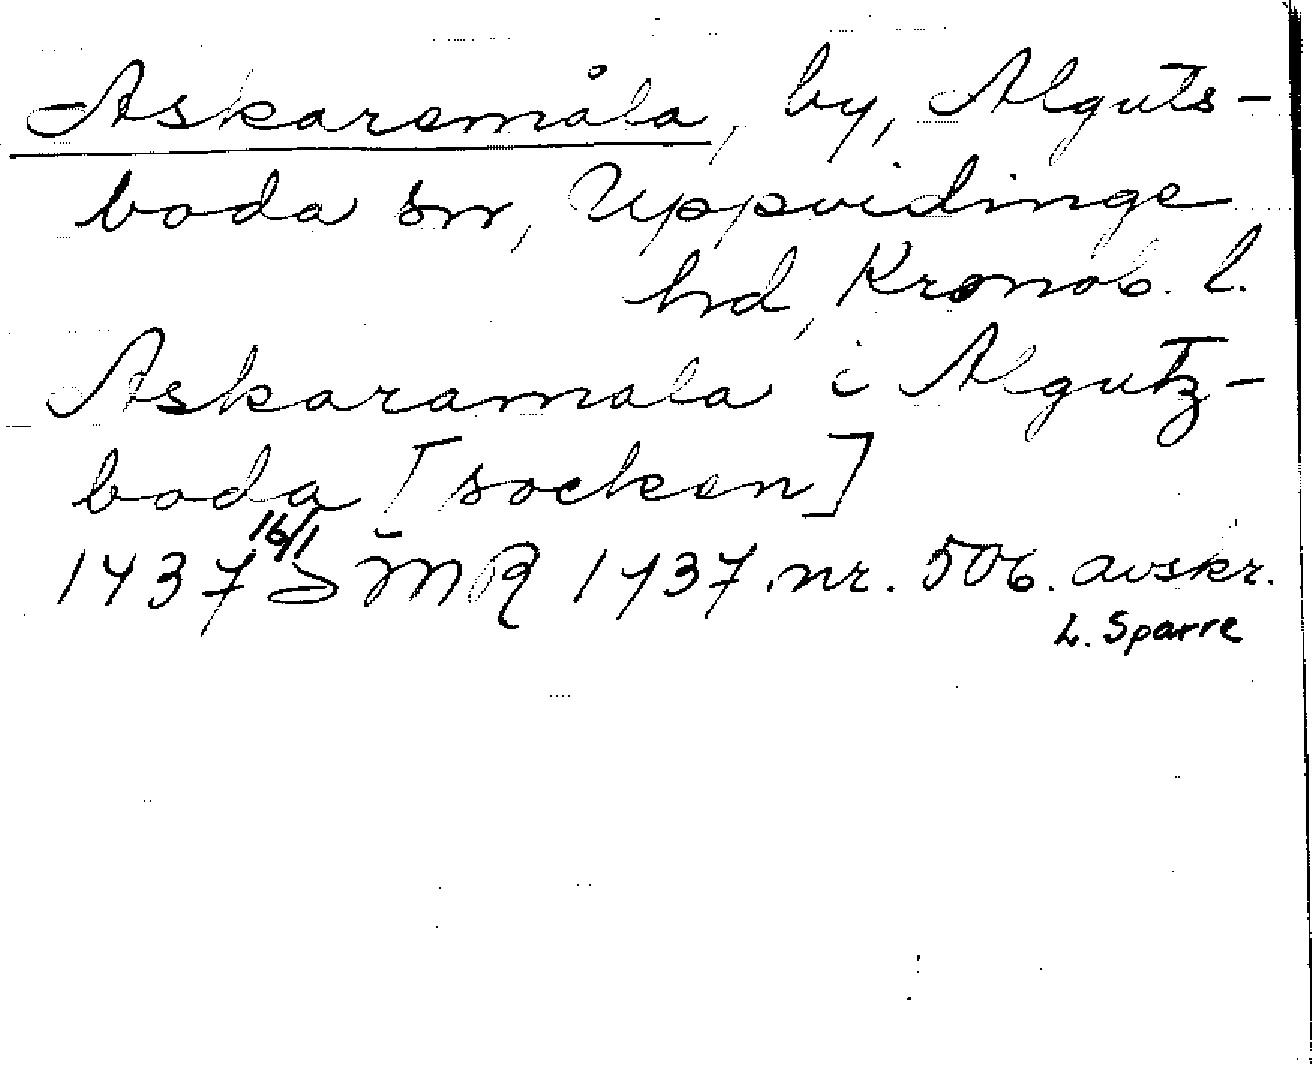 Askaremåla, by, Alguts-
boda sn, Uppvidinge
hd, Kronob. l.
Askaramala i Algutz-
boda [socken]
1437 16/1 SMR 1437 nr. 506. avskr.
L. Sparre